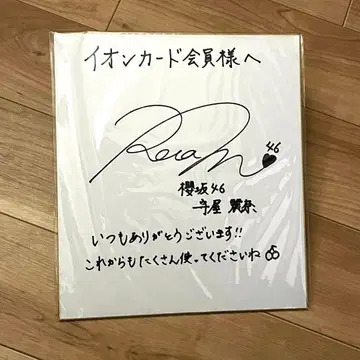 イオンカード会員様へ
46
櫻坂46
守屋 麗奈
いつもありがとうございます!!
これからもたくさん使ってくださいね